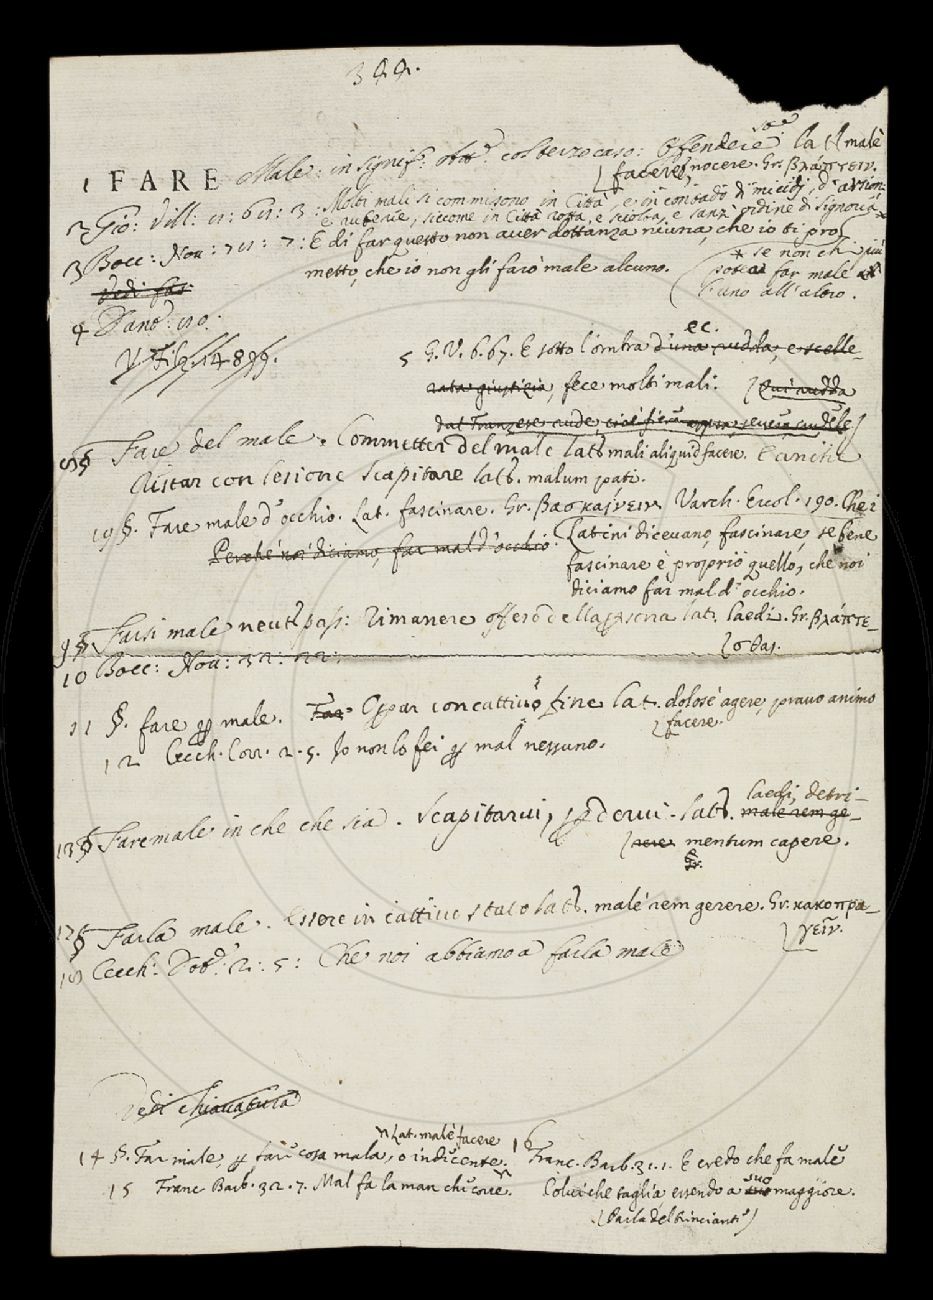 399.
1 FARE Male: in signif: att: col terzo caso: Offendere lat malè
facere, nocere. Gr. βλάπτειν.
2 Gio: Vill: 11: 611: 3: Molti mali si commisono in Città, e in contado di micidj, d'arsioni
e ruberie, siccome in Città rotta, e sciolta, e sanz' ordine di Signoria
3 Bocc: Nov: 711: 7: E di far questo non aver dottanza niuna, che io ti pro
metto, che io non gli farò male alcuno.
* se non chi più
potea far male
l'uno all'altro.
Vedi far
4 Dant:
V. Filz. 14899.
5 G. V. 6. 67. E sotto l'ombra d'una cruda, e scelle-
ec.
rata giustizia, fece molti mali.
§ Fare del male. Commetter del male lat. mali aliquid facere.
Ristar con lesione Scapitare lat. malum pati.
19 §. Fare male d'occhio. Lat. fascinare. Gr. βασκαίνειν Varch. Ercol. 190. Che i
Perchè noi diciamo, far mal d'occhio.
Latini dicevano, fascinare, se bene
fascinare è proprio quello, che noi
diciamo far mal d'occhio.
9 § Farsi male neut. pass: Rimanere offeso della persona lat. laedi. Gr. βλάπτε-
σθαι.
10 Bocc: Nov: 32: 22:
11 §. fare male. Far Oprar con cattivo fine lat. dolosè agere, pravo animo
facere.
12 Cecch. Corr. 2. 5. Io non lo fei mal nessuno.
13 § Far male in che che sia. Scapitarvi, perdervi. lat. male rem ge-
laedi, detri-
rere mentum capere.
Gr.
17 § Farla male. Essere in cattivo stato lat. malè rem gerere. Gr. κακοπρα-
γεῖν.
18 Cecch: Dot: 2: 5: Che noi abbiamo a farla male
Vedi chiavatura
Lat. malè facere
14 §. Far male, far cosa mala, o indicente.
16 Franc. Barb. 31. 1. E credo che fa male
15 Franc. Barb. 32. 7. Mal fa la man chi corre.
Colui che taglia essendo a suo maggiore.